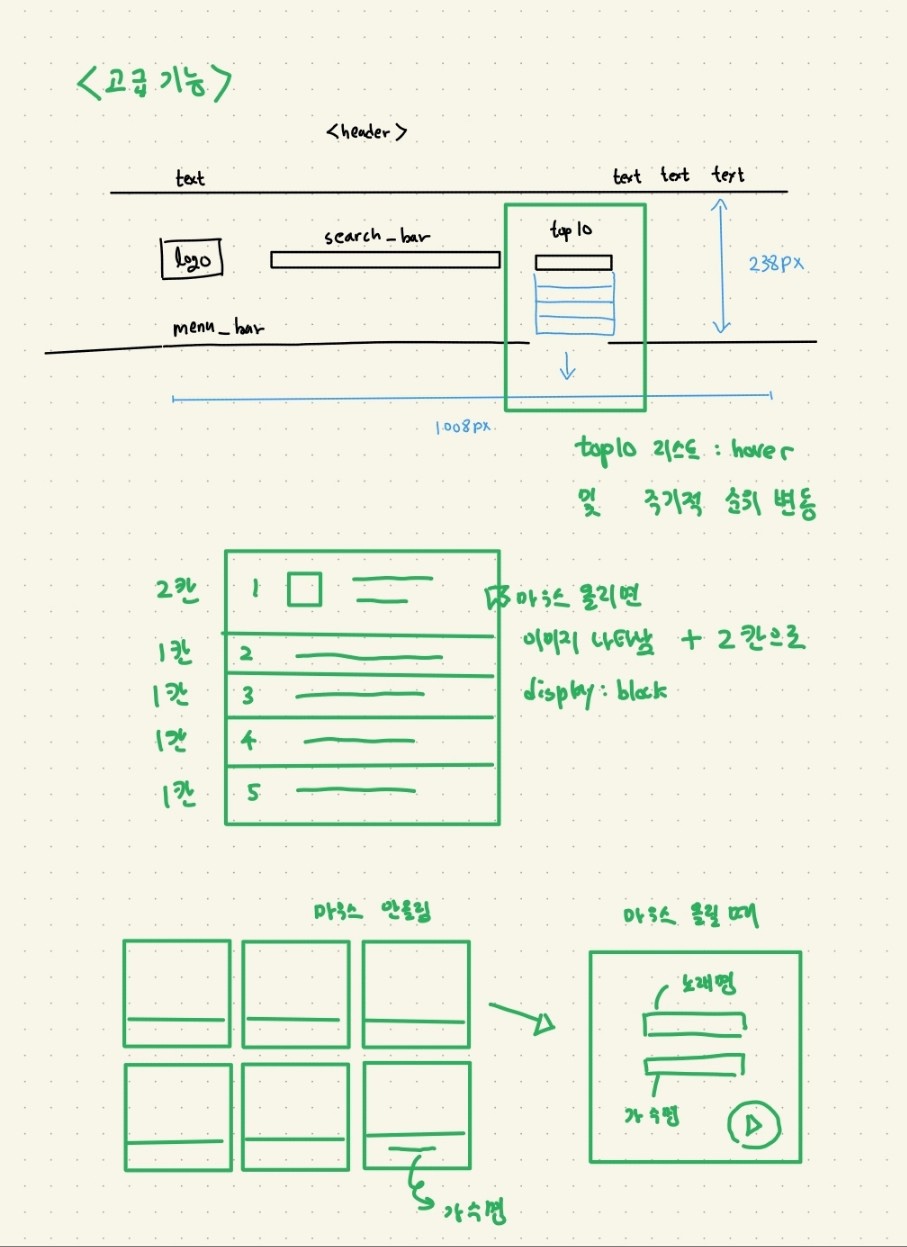 <고급 기능>
<header>
text text text text
logo search_bar top10
238px
menu_bar
1008px
top10 리스트 : hover
및 주기적 순위 변동
2칸 1
마우스 올리면
1칸 2
이미지 나타남 + 2칸으로
1칸 3
display: block
1칸 4
1칸 5
마우스 안올림
마우스 올릴 때
노래명
가수명
가수명